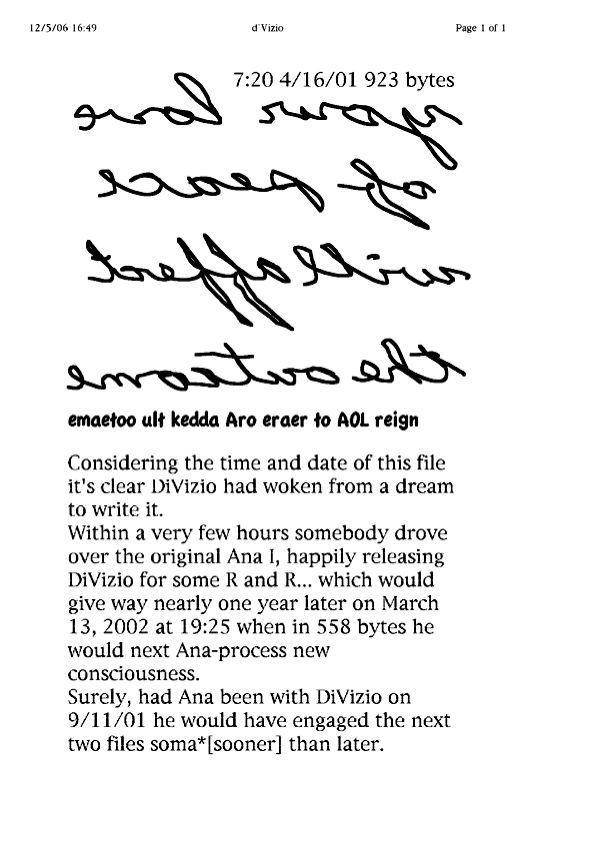 12/5/06 16:49 d'Vizio Page 1 of 1
7:20 4/16/01 923 bytes
emaetoo ult kedda Aro eraer to AOL reign
Considering the time and date of this file
it's clear DiVizio had woken from a dream
to write it.
Within a very few hours somebody drove
over the original Ana I, happily releasing
DiVizio for some R and R... which would
give way nearly one year later on March
13, 2002 at 19:25 when in 558 bytes he
would next Ana-process new
consciousness.
Surely, had Ana been with DiVizio on
9/11/01 he would have engaged the next
two files soma*[sooner] than later.